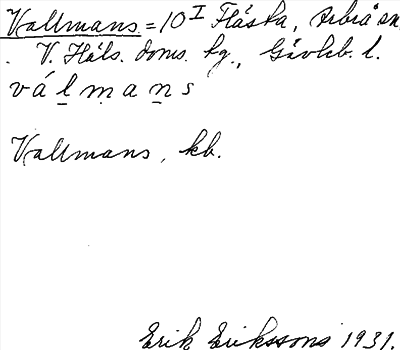 Vallmans = 10 I Flästa, Arbrå sn.
V. Häls. doms. hg., Gävleb. l.
v á l m a n s
Vallmans, kb.
Erik Erikssons 1931.